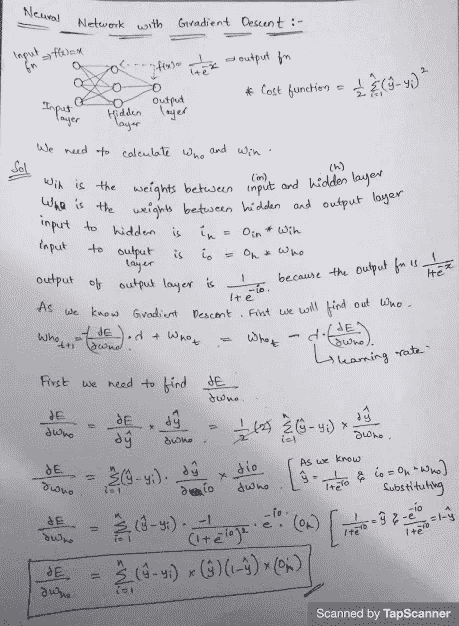 Neural Network with Gradient Descent :-
Input fn ⇒ f(x)=x
f(x) = 1/(1+e^-x) ⇒ output fn
* Cost function = 1/2 Σ_{i=1}^{n} (ŷ-yi)²
Input layer Hidden layer Output layer
We need to calculate Who and Wih.
Sol
Wih is the weights between input (in) and hidden layer (h)
Who is the weights between hidden and output layer
input to hidden is ih = Oin * Wih
Input to output layer is io = Oh * Who
output of output layer is 1/(1+e^-io), because the output fn is 1/(1+e^-x)
As we know Gradient Descent. First we will find out Who.
Who_{t+1} = -(dE/dwho).d + Who_t = Who_t - d.(dE/dwho).
↳ learning rate
First we need to find dE/dwho.
dE/dwho = dE/dŷ × dŷ/dwho = 1/2 (2) Σ_{i=1}^{n} (ŷ-yi) × dŷ/dwho.
dE/dwho = Σ_{i=1}^{n} (ŷ-yi). dŷ/dio × dio/dwho [As we know ŷ = 1/(1+e^-io) & io = Oh * Who] Substituting
dE/dwho = Σ_{i=1}^{n} (ŷ-yi). -1/(1+e^-io)² . e^-io. (Oh) [1/(1+e^-io) = ŷ & -e^-io/(1+e^-io) = 1-ŷ
dE/dwho = Σ_{i=1}^{n} (ŷ-yi) × (ŷ)(1-ŷ) × (Oh)
Scanned by TapScanner